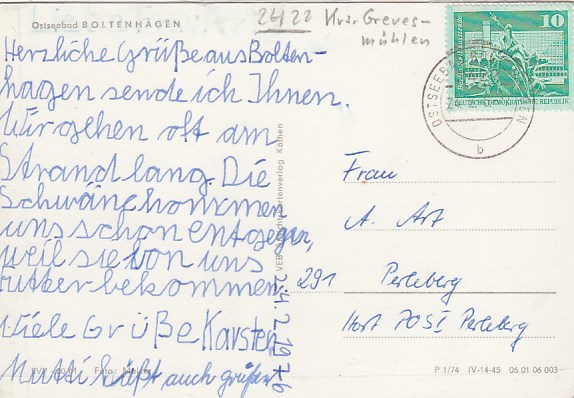 Ostseebad BOLTENHAGEN
2422 Kreis Greves-
mühlen
10
DEUTSCHE DEMOKRATISCHE REPUBLIK
OSTSEEBAD
b
Herzliche Grüße aus Bolten-
hagen sende ich Ihnen.
Wir gehen oft am
Strand lang. Die
Schwäne kommen
uns schon entgegen,
weil sie von uns
Futter bekommen.
Viele Grüße Karsten
Mutti läßt auch grüßen
24.2.1976
VEB Köthen
Frau
A. Art
291 Perleberg
Hort POS I Perleberg
Foto:
P 1/74 IV-14-45 06 01 06 003